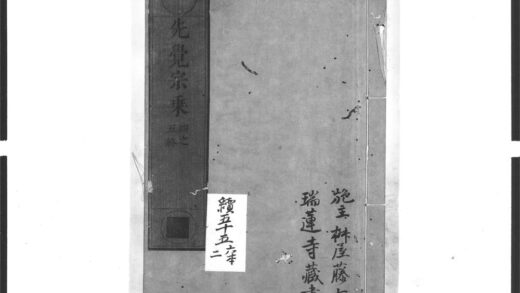 施主桝屋藤
瑞蓮寺藏
續五十五
二
先覺宗乘